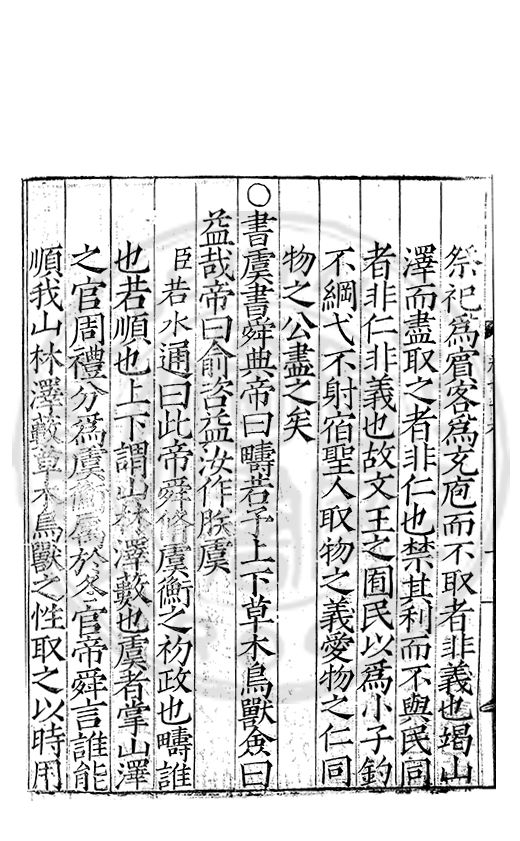 祭祀為賓客為充庖而不取者非義也竭山
澤而盡取之者非仁也禁其利而不與民同
者非仁非義也故文王之囿民以為小子釣
不綱弋不射宿聖人取物之義愛物之仁同
物之公盡之矣
○書虞書舜典帝曰疇若予上下草木鳥獸僉曰
益哉帝曰俞咨益汝作朕虞
臣若水通曰此帝舜脩虞衡之初政也疇誰
也若順也上下謂山林澤藪也虞者掌山澤
之官周禮分為虞衡屬於冬官帝舜言誰能
順我山林澤藪草木鳥獸之性取之以時用